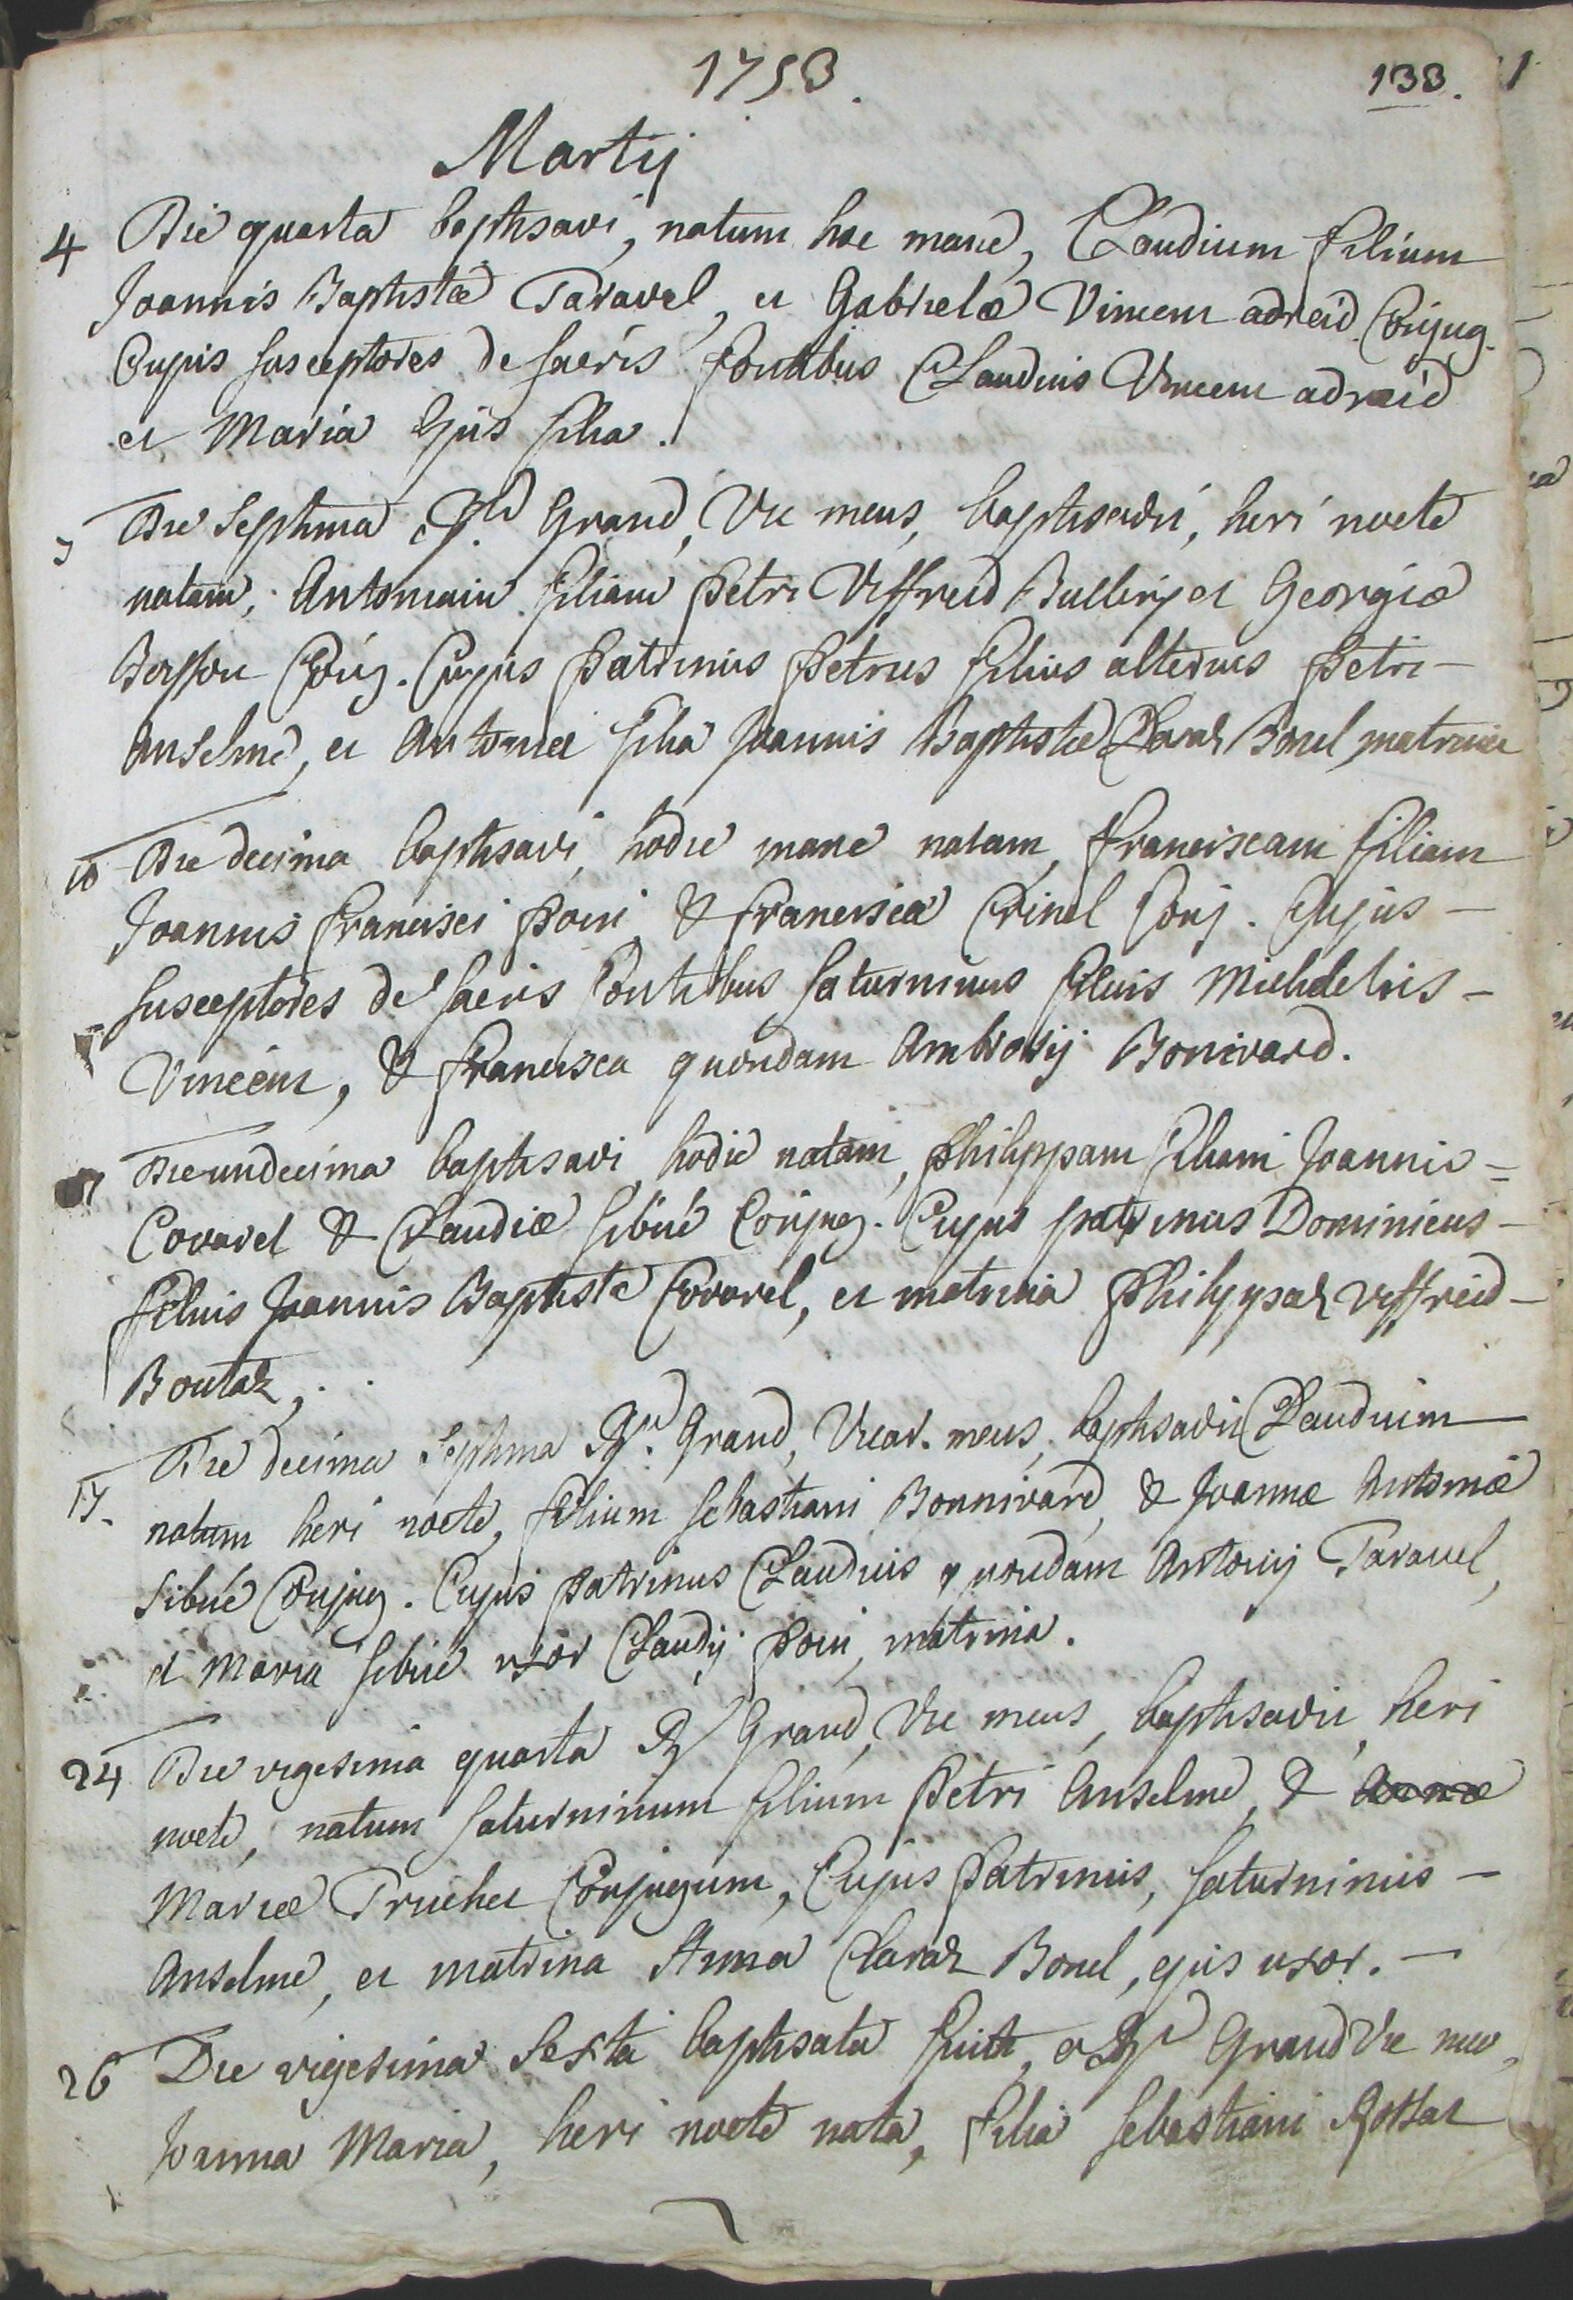 1753.
133.
Martij
4 Die quarta baptisavi, natum hoc mane, Claudium filium
Joannis Baptistæ Taravel, et Gabrielæ Vincent adreid. Conjug.
Cujus susceptores de sacris fontibus Claudius Vincent adreid
et Maria Ejus filia.
Die Septima Rdus Grand, Vic meus, baptisavit, heri nocte
natam, Antoniam filiam Petri Viffreid Bulliez et Georgiæ
Conjug. Cujus Patrinus Petrus filius alterius Petri
Anselme, et Antonia filia Joannis Baptistæ Claraz Bonel matrina
10 Die decima baptisavi, hodie mane natam, Franciscam filiam
Joannis Francisci & Franciscæ Crinel Conj. Cujus
susceptores de sacris fontibus Saturninus filius Michaelis
Vincent, & Francisca quondam Ambrosij Bonivard.
Die undecima baptisavi, hodie natam, Philippam filiam Joannis
Covarel & Claudiæ Sibué Conjug. Cujus patrinus Dominicus
filius Joannis Baptistæ Covarel, et matrina Philippaz Viffreid
Boutaz.
17. Die decima septima Rdus Grand, Vicar. meus, baptisavit Claudium
natum heri nocte, filium Sebastiani Bonnivard, & Joannæ Antoniæ
Sibué Conjug. Cujus patrinus Claudius quondam Antonij Taravel,
et Maria Sibué uxor Claudij matrina.
24 Die vigesima quarta Rd Grand, Vic meus, baptisavit, heri
nocte, natum Saturninum filium Petri Anselme, & Annæ
Mariæ Truchet Conjugum, Cujus Patrinus, Saturninus
Anselme, et matrina Anna Claraz Bonel, ejus uxor.
26 Die vigesima Sexta baptisata fuit, a Rdo Grand Vic meo,
Joanna Maria, heri nocte nata, filia Sebastiani